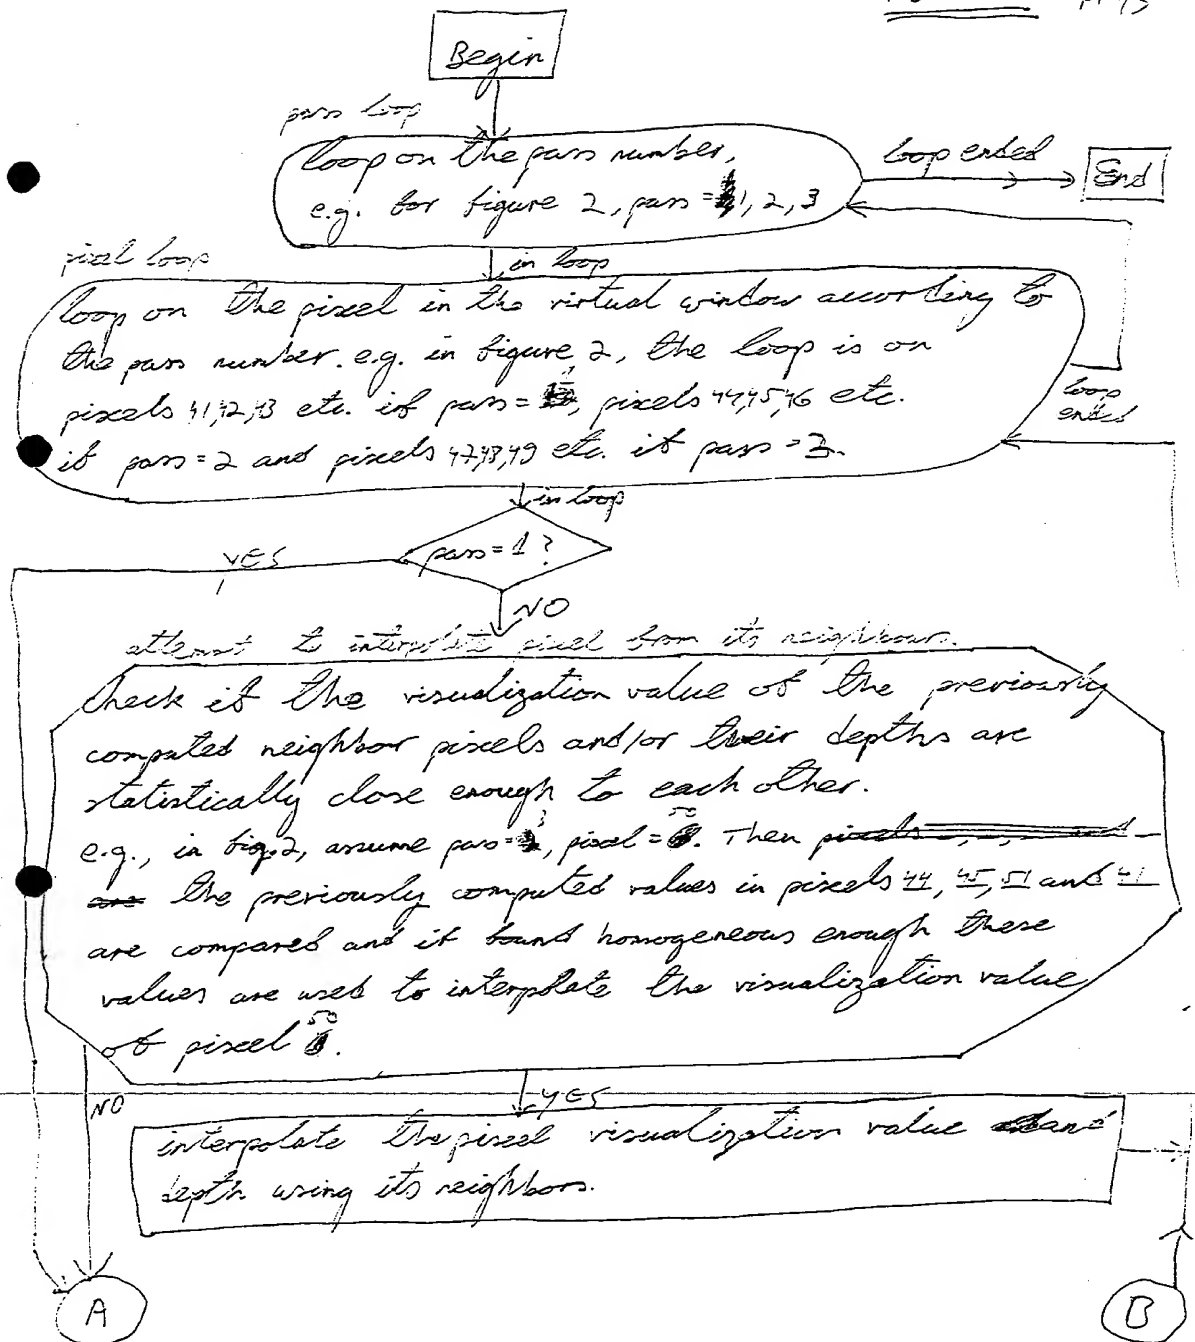 Begin
pass loop
loop on the pass number,
e.g. for figure 2, pass = 1, 2, 3
loop ended
End
pixel loop
in loop
loop on the pixel in the virtual window according to
the pass number. e.g. in figure 2, the loop is on
pixels 41,42,43 etc. if pass = 1, pixels 44,45,46 etc.
if pass = 2 and pixels 47,48,49 etc. if pass = 3.
loop
ended
in loop
pass = 1 ?
YES
NO
attempt to interpolate pixel from its neighbours.
Check if the visualization value of the previously
computed neighbor pixels and/or their depths are
statistically close enough to each other.
e.g., in fig. 2, assume pass = 3, pixel = 50. Then
the previously computed values in pixels 44, 45, 51 and 41
are compared and if found homogeneous enough these
values are used to interpolate the visualization value
of pixel 50.
NO
YES
interpolate the pixel visualization value and
depth using its neighbors.
A
B